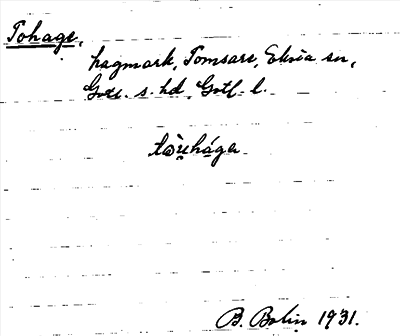 Tohage,
hagmark, Tomsarv, Ekvia sn,
Gotl. s. hd, Gotl. l.
B. Bolin 1931.